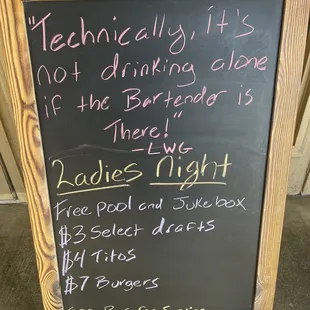 "Technically, it's
not drinking alone
if the Bartender is
There!"
-LWG
Ladies Night
Free pool and Jukebox
$3 Select drafts
$4 Titos
$7 Burgers